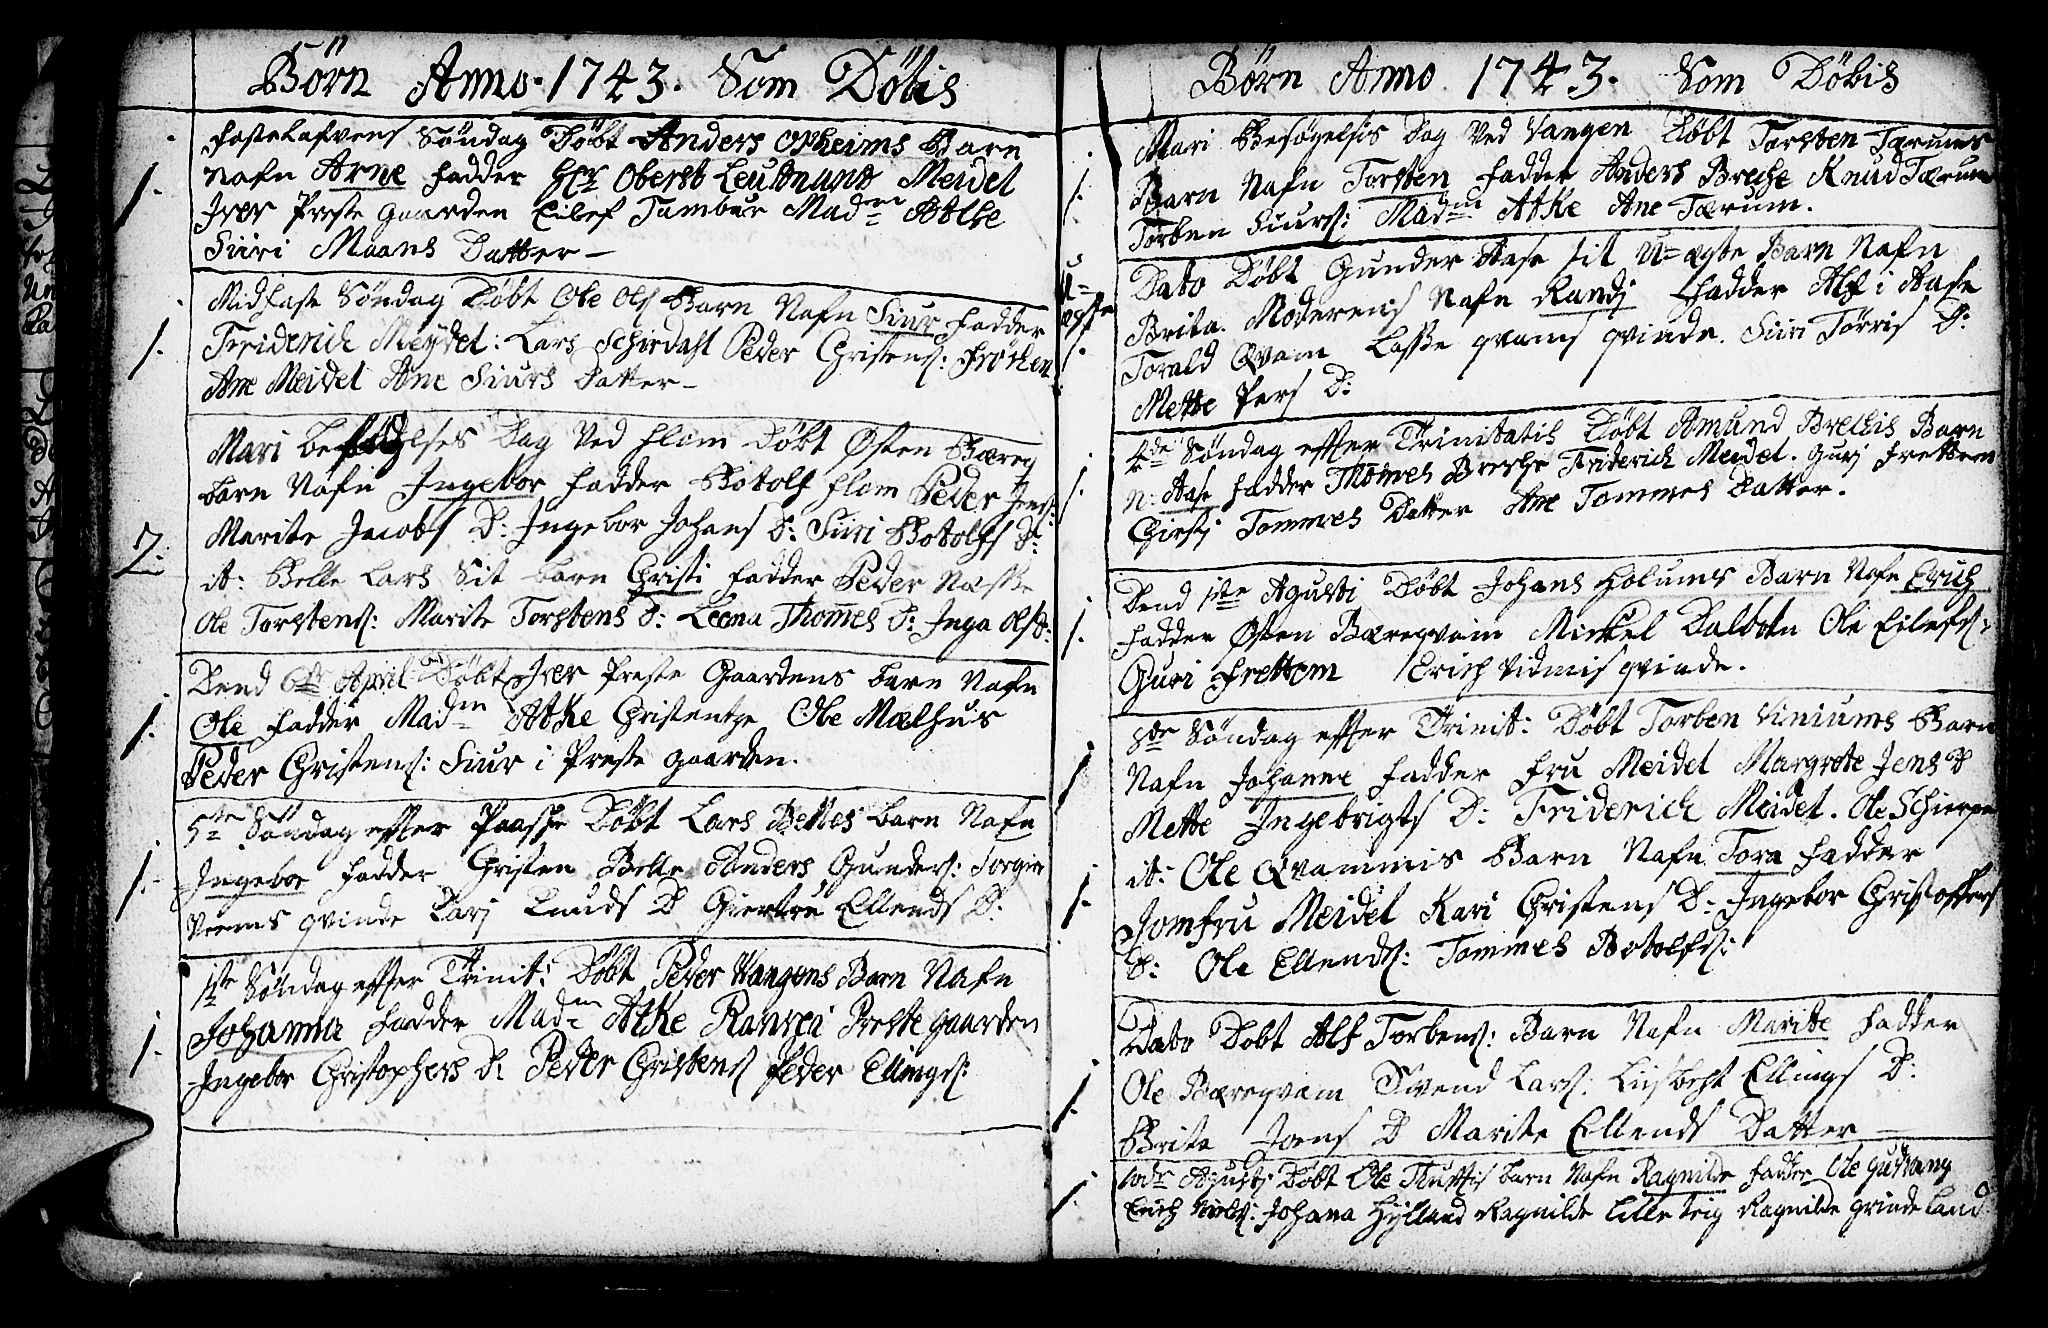 Börn Anno 1743. Som Döbis
Fastelafvens Söndag Döbt Anders Opheims Barn
Nafn Arne Fadder Her Oberst Leutnand Meidel
1. Iver Præste gaarden Eilef Tambur Madm Atke
Siiri Maans Datter
Midfaste Söndag Döbt Ole Ols Barn Nafn Siur Fadder
1. Friderich Meydel: Lars Schirdahl Peder Christens: Fröchen
Ane Meidel Ane Siurs Datter
Mari Dag Ved Flom Döbt Østen
barn Nafn Ingebor Fadder Botolf Flom Peder Jens:
Marite Jacobs D: Ingebor Johans D: Siiri Botolfs D:
2. it: Belle Lars Sit barn Christi Fadder Peder Næsse
Ole Torstens: Marite Torstens D: Leena Thomes D: Inga Ols D:
Dend 6te April Döbt Iver Præste Gaardens barn Nafn
1. Ole Fadder Madm Atke Christentze Ole Mælhus
Peder Christens: Siur i Præste gaarden.
5te Söndag effter Paasche Döbt Lars Belles barn Nafn
1. Ingebor Fadder Christen Belle Anders Gunders:
qvinde Knuds D Giertru Ellends D:
1ste Söndag effter Trinit: Döbt Peder Vangens Barn Nafn
1. Johanna Fadder Madm Atke Ranvei Præste gaarden
Ingebor Christophers D: Peder Christens Peder Ellings:
Börn Anno 1743. Som Döbis
Mari Besøgelsis Dag Ved Vangen Döbt Torsten Tærums
1. Barn Nafn Torsten Fadder Anders Breche Knud Tærum
Torben Siurs: Madm Atke Ane Tærum.
U= ægte 1. Dato Döbt Gunder Aase sit U=ægte Barn Nafn
Brita. Moderens Nafn Randj Fadder Alf i Aase
Torald Qvam Lasse qvams qvinde. Siiri Törris D:
Mette Pers D:
4de Söndag effter Trinitatis Döbt Amund Brechis Barn
1. N: Aase Fadder Thomes Breche Friderich Meidel. Gurj Frettem
Girtj Tommes Datter Ane Tommes Datter.
Dend 1ste Agusti Döbt Johans Holums Barn Nafn Erich
1. Fadder Østen Bæreqvam Mickel Dalbotn Ole Eilefs:
Guri Frettem Erich Vidmis qvinde.
8de Söndag effter Trinit: Döbt Torben Viniums Barn
1 Nafn Johanne Fadder Fru Meidel Margrete Jens D
Mette Ingebrigts D: Friderich Meidel. Ole Schierpe
it: Ole Qvammis Barn Nafn Tora Fadder
1. Jomfru Meidel Kari Christens D: Ingebor Christoffers
D: Ole Ellends: Tommes Botolfs:
Dato Dobt Alf Torbens: Barn Nafn Marite Fadder
1. Ole Bæreqvam Svend Lars: Lisbeht Ellings D:
Brita Joens D Marite Ellends Datter
1. Agusti Döbt Ole barn Nafn Ragnilde Fadder Ole Gudvang
Erich Johana Hylland Ragnilde Lilleteig Ragnilde Grindeland